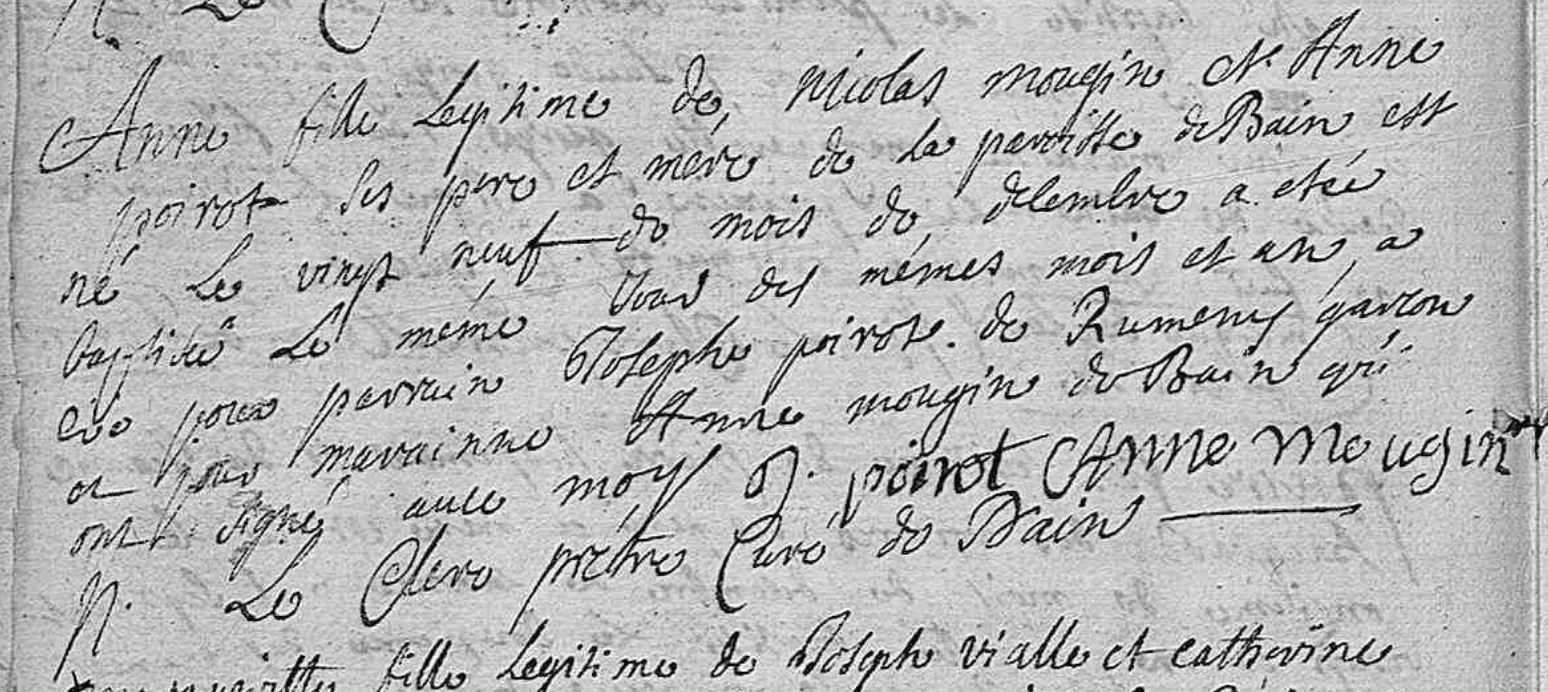 N. Le C
Anne fille Legitime de, Nicolas mougin et Anne
poirot ses pere et mére de la paroisse de Bain est
né Le vingt neuf du mois de decembre a eteé
Baptisée Le méme Jour des mémes mois et an, a
eüe pour parrain Joseph poirot de Rumeny garcon
et pour marainne Anne mougin de Bain qui
ont signé avec moy J. poirot Anne Mougin
N. Le Clerc prétre Curé de Bain
fille Legitime de Joseph vialle et catherine